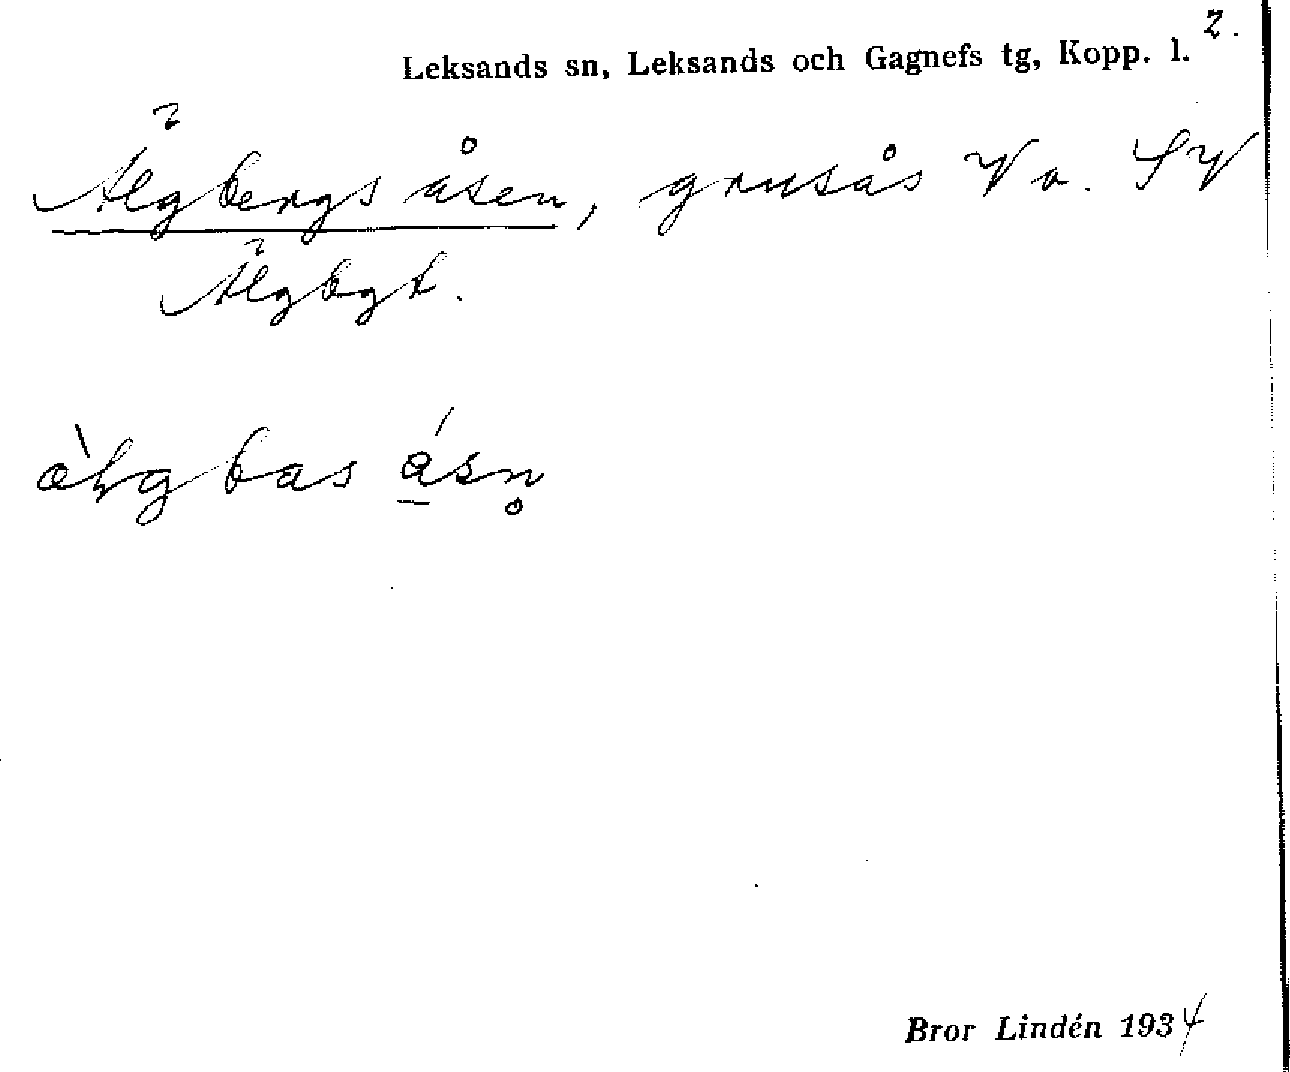 2.
Leksands sn, Leksands och Gagnefs tg, Kopp. l.
Älgbergsåsen, grusås V o. SV
Älgbgt.
ä̀ɫgbas ǻ̱sn̥
Bror Lindén 1934